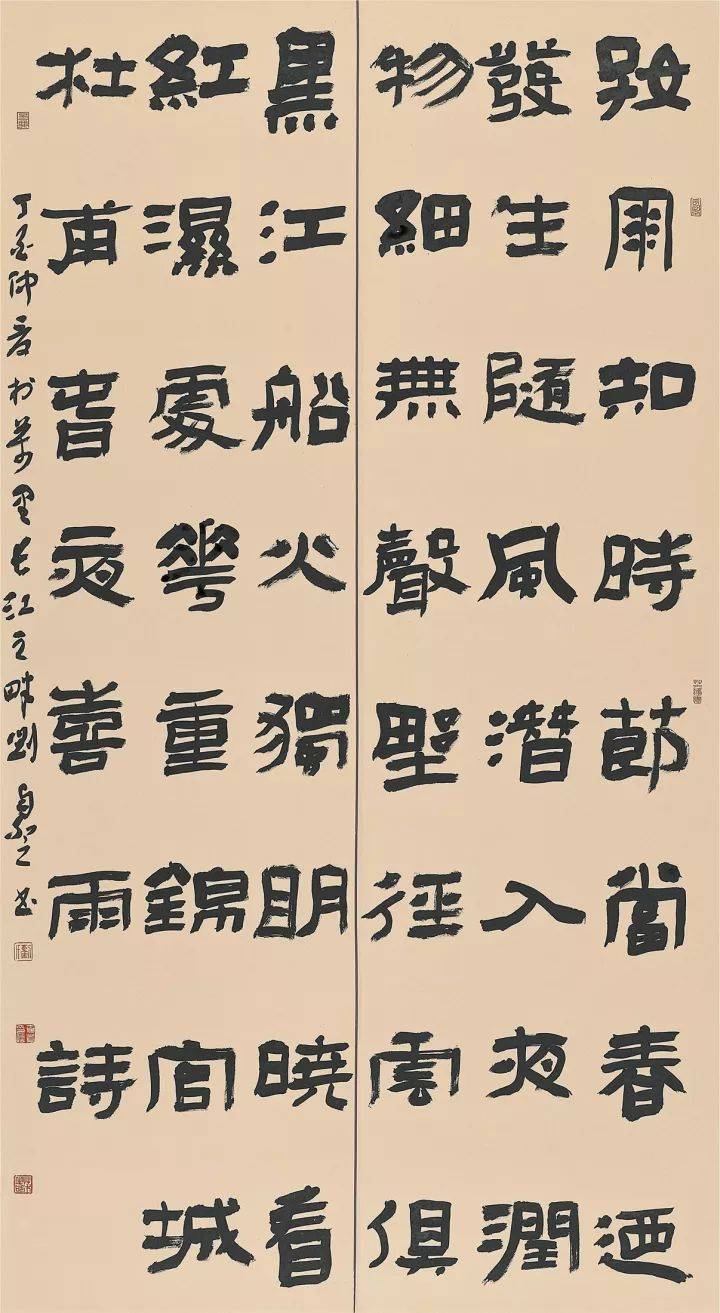 好雨知時節當春迺
發生隨風潛入夜潤
物細無聲野徑雲俱
黑江船火獨明曉看
紅濕處花重錦官城
杜甫春夜喜雨詩
丁酉仲夏於萬里長江之畔劉書